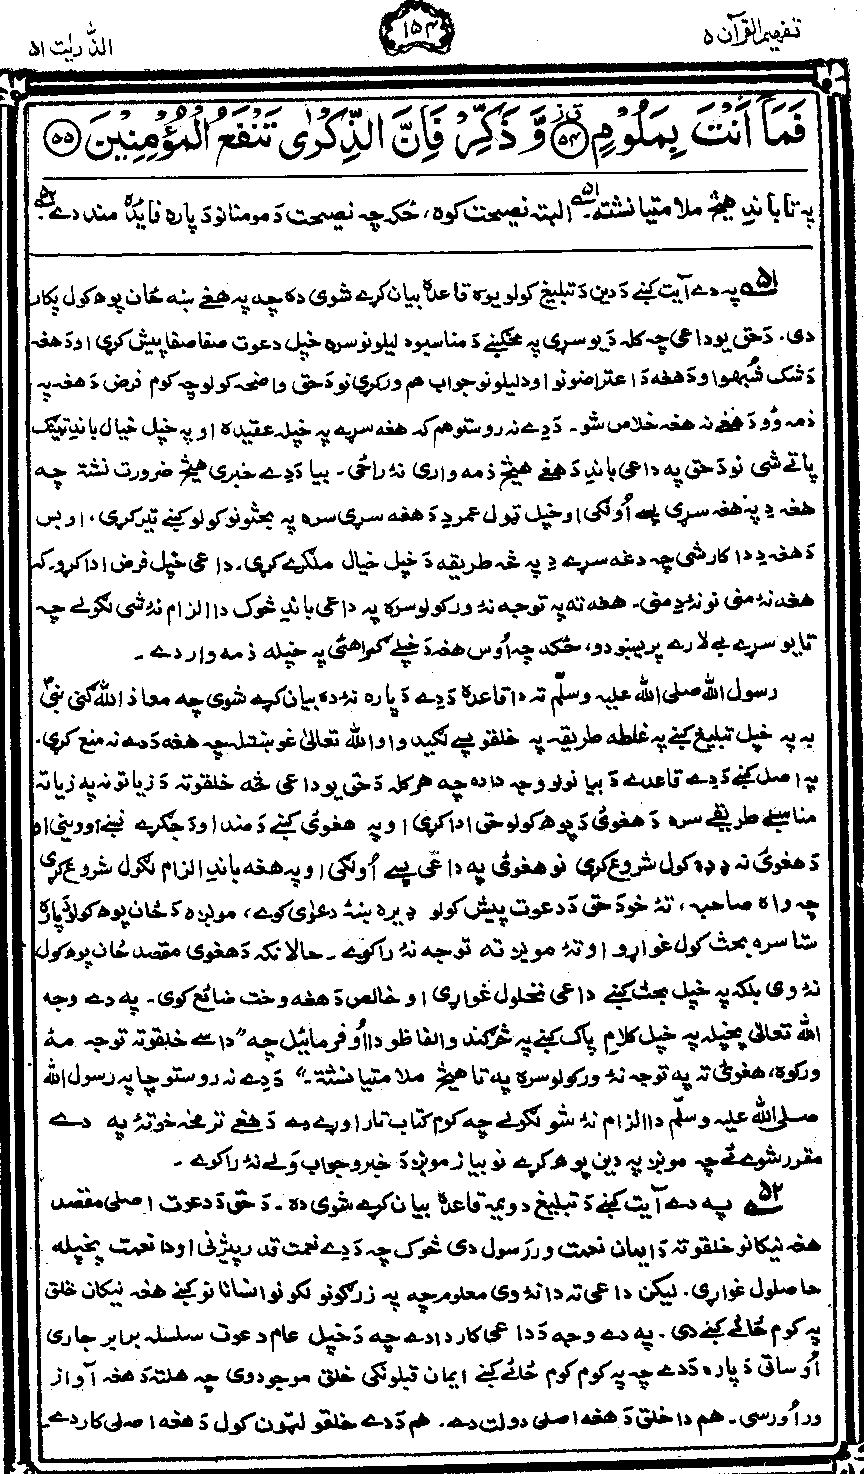 تفهيم القرآن ۵
۱۵۴
الذّٰريٰت ۵۱
فَمَآ اَنْتَ بِمَلُوْمٍ ﴿۵۴﴾ وَّ ذَكِّرْ فَاِنَّ الذِّكْرٰى تَنْفَعُ الْمُؤْمِنِيْنَ ﴿۵۵﴾
په تا باندِ هيڅ ملامتيا نشته ۔ ۵۱ البته نصيحت کوه، ځکه چه نصيحت دَ مومنانو دَ پاره فايده مند دے ۵۲
۵۱ په دے آيت کښے دَ دين دَ تبليغ کولو يوه قاعده بيان کرے شوى ده چه په هغے ښه ځان پوهـ کول پکار
دى. دَ حق يو داعى چه کله دَ يو سړى په مخکښے دَ مناسبو دليلونو سره خپل دعوت صفا صفا پيش کړى او دَ هغه
دَ شک شبهو او دَ هغه دَ اعتراضونو او دليلونو جواب هم ورکړى نو دَ حق واضحه کولو چه کوم فرض دَ هغه په
ذمه وو دَ هغے نه هغه خلاص شو ۔ دَ دے نه روستو هم که هغه سړے په خپله عقيده او په خپل خيال باندِ ټينګ
پاتے شى نو دَ حق په داعى باندِ دَ هغے هيڅ ذمه وارى نۀ راځى ۔ بيا دَ دے خبرى هيڅ ضرورت نشته چه
هغه دِ په هغه سړى پسے اُولګى او خپل ټول عمر دِ دَ هغه سړى سره په بحثونو کولو کښے تير کړى، او بس
دَ هغه دِ دا کار شى چه دغه سړے دِ په څه طريقه دَ خپل خيال ملګرے کړى۔ داعى خپل فرض ادا کړو۔ که
هغه نۀ منى نو نۀ دِ منى۔ هغه ته په توجه نۀ ورکولو سره په داعى باندِ څوک دا الزام نۀ شى لګولے چه
تا يو سړے بے لارے پريښودو، ځکه چه اُوس هغه دَ خپلے ګمراهئ په خپله ذمه وار دے ۔
رسول الله صلى الله عليه وسلم ته دا قاعده دَ دے دَ پاره نۀ ده بيان کرے شوى چه معاذ الله ګنى نبىؐ
به په خپل تبليغ کښے په غلطه طريقه په خلقو پسے لګيدو او الله تعالىٰ غوښتل چه هغه دَ دے نه منع کړى۔
په اصل کښے دَ دے قاعدے دَ بيانولو وجه دا ده چه هر کله دَ حق يو داعى څه خلقو ته دَ زياتو نه په زياته
مناسبے طريقے سره دَ هغوئ دَ پوهـ کولو حق ادا کړى او په هغوئ کښے دَ ضد او دَ جګړے نښے اوويينى او
دَ هغوئ نه ډډه کول شروع کړى نو هغوئ په داعى پسے اُولګى او په هغه باندِ الزام لګول شروع کړى
چه واه صاحبه، تۀ خو دَ حق دَ دعوت پيش کولو ډيره ښۀ دعوىٰ کوے، مونږه دَ ځان پوهـ کولو دَ پاره
ستا سره بحث کول غواړو او تۀ مونږ ته توجه نۀ راکوے ۔ حالانکه دَ هغوى مقصد ځان پوهـ کول
نۀ وى بلکه په خپل بحث کښے داعى نخلول غواړى او خالص دَ هغه وخت ضائع کوى ۔ په دے وجه
الله تعالىٰ پخپله په خپل کلام پاک کښے په څرګندو الفاظو دا اُوفرمائيل چه ”داسے خلقو ته توجه مۀ
ورکوه، هغوئ ته په توجه نۀ ورکولو سره په تا هيڅ ملامتيا نشته۔“ دَ دے نه روستو چا په رسول الله
صلى الله عليه وسلم دا الزام نۀ شو لګولے چه کوم کتاب تا راوړے دے دَ هغے تر مخه خو تۀ په دے
مقرر شوے ئے چه مونږ په دين پوهـ کړے نو بيا زمونږ دَ خبرو جواب ولے نۀ راکوے ۔
۵۲ په دے آيت کښے دَ تبليغ دويمه قاعده بيان کرے شوى ده ۔ دَ حق دَ دعوت اصلى مقصد
هغه نيکانو خلقو ته دَ ايمان نعمت وررسول دى څوک چه دَ دے نعمت قدر پيژنى او دا نعمت پخپله
حاصلول غواړى۔ ليکن داعى ته دا نۀ وى معلومه چه په زرګونو لکونو انسانانو کښے هغه نيکان خلق
په کوم ځائے کښے دى ۔ په دے وجه دَ داعى کار دا دے چه دَ خپل عام دعوت سلسله برابر جارى
اُوساتى دَ پاره دَ دے چه په کوم کوم ځائے کښے ايمان قبلونکى خلق موجود وى چه هلته دَ هغه آواز
ور اُورسى ۔ هم دا خلق دَ هغه اصلى دولت دے۔ هم دَ دے خلقو لټون کول دَ هغه اصلى کار دے